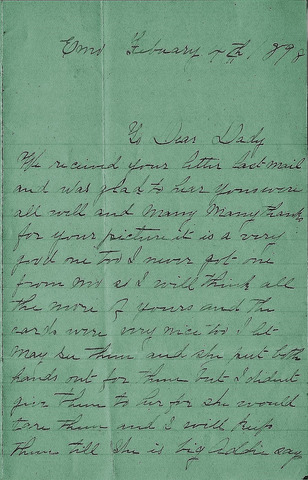 Emo Febuary 7th, 1898
To Dear Dady
We recieved your letter last mail
and was glad to hear you were
all well and Many Many thanks
for your picture it is a very
good one too I never got one
from so I will think all
the more of yours and the
cards were very nice too I let
May see them and she put both
hands out for them but I didnt
give them to her for she would
tare them and I will keep
them till she is big Addie say